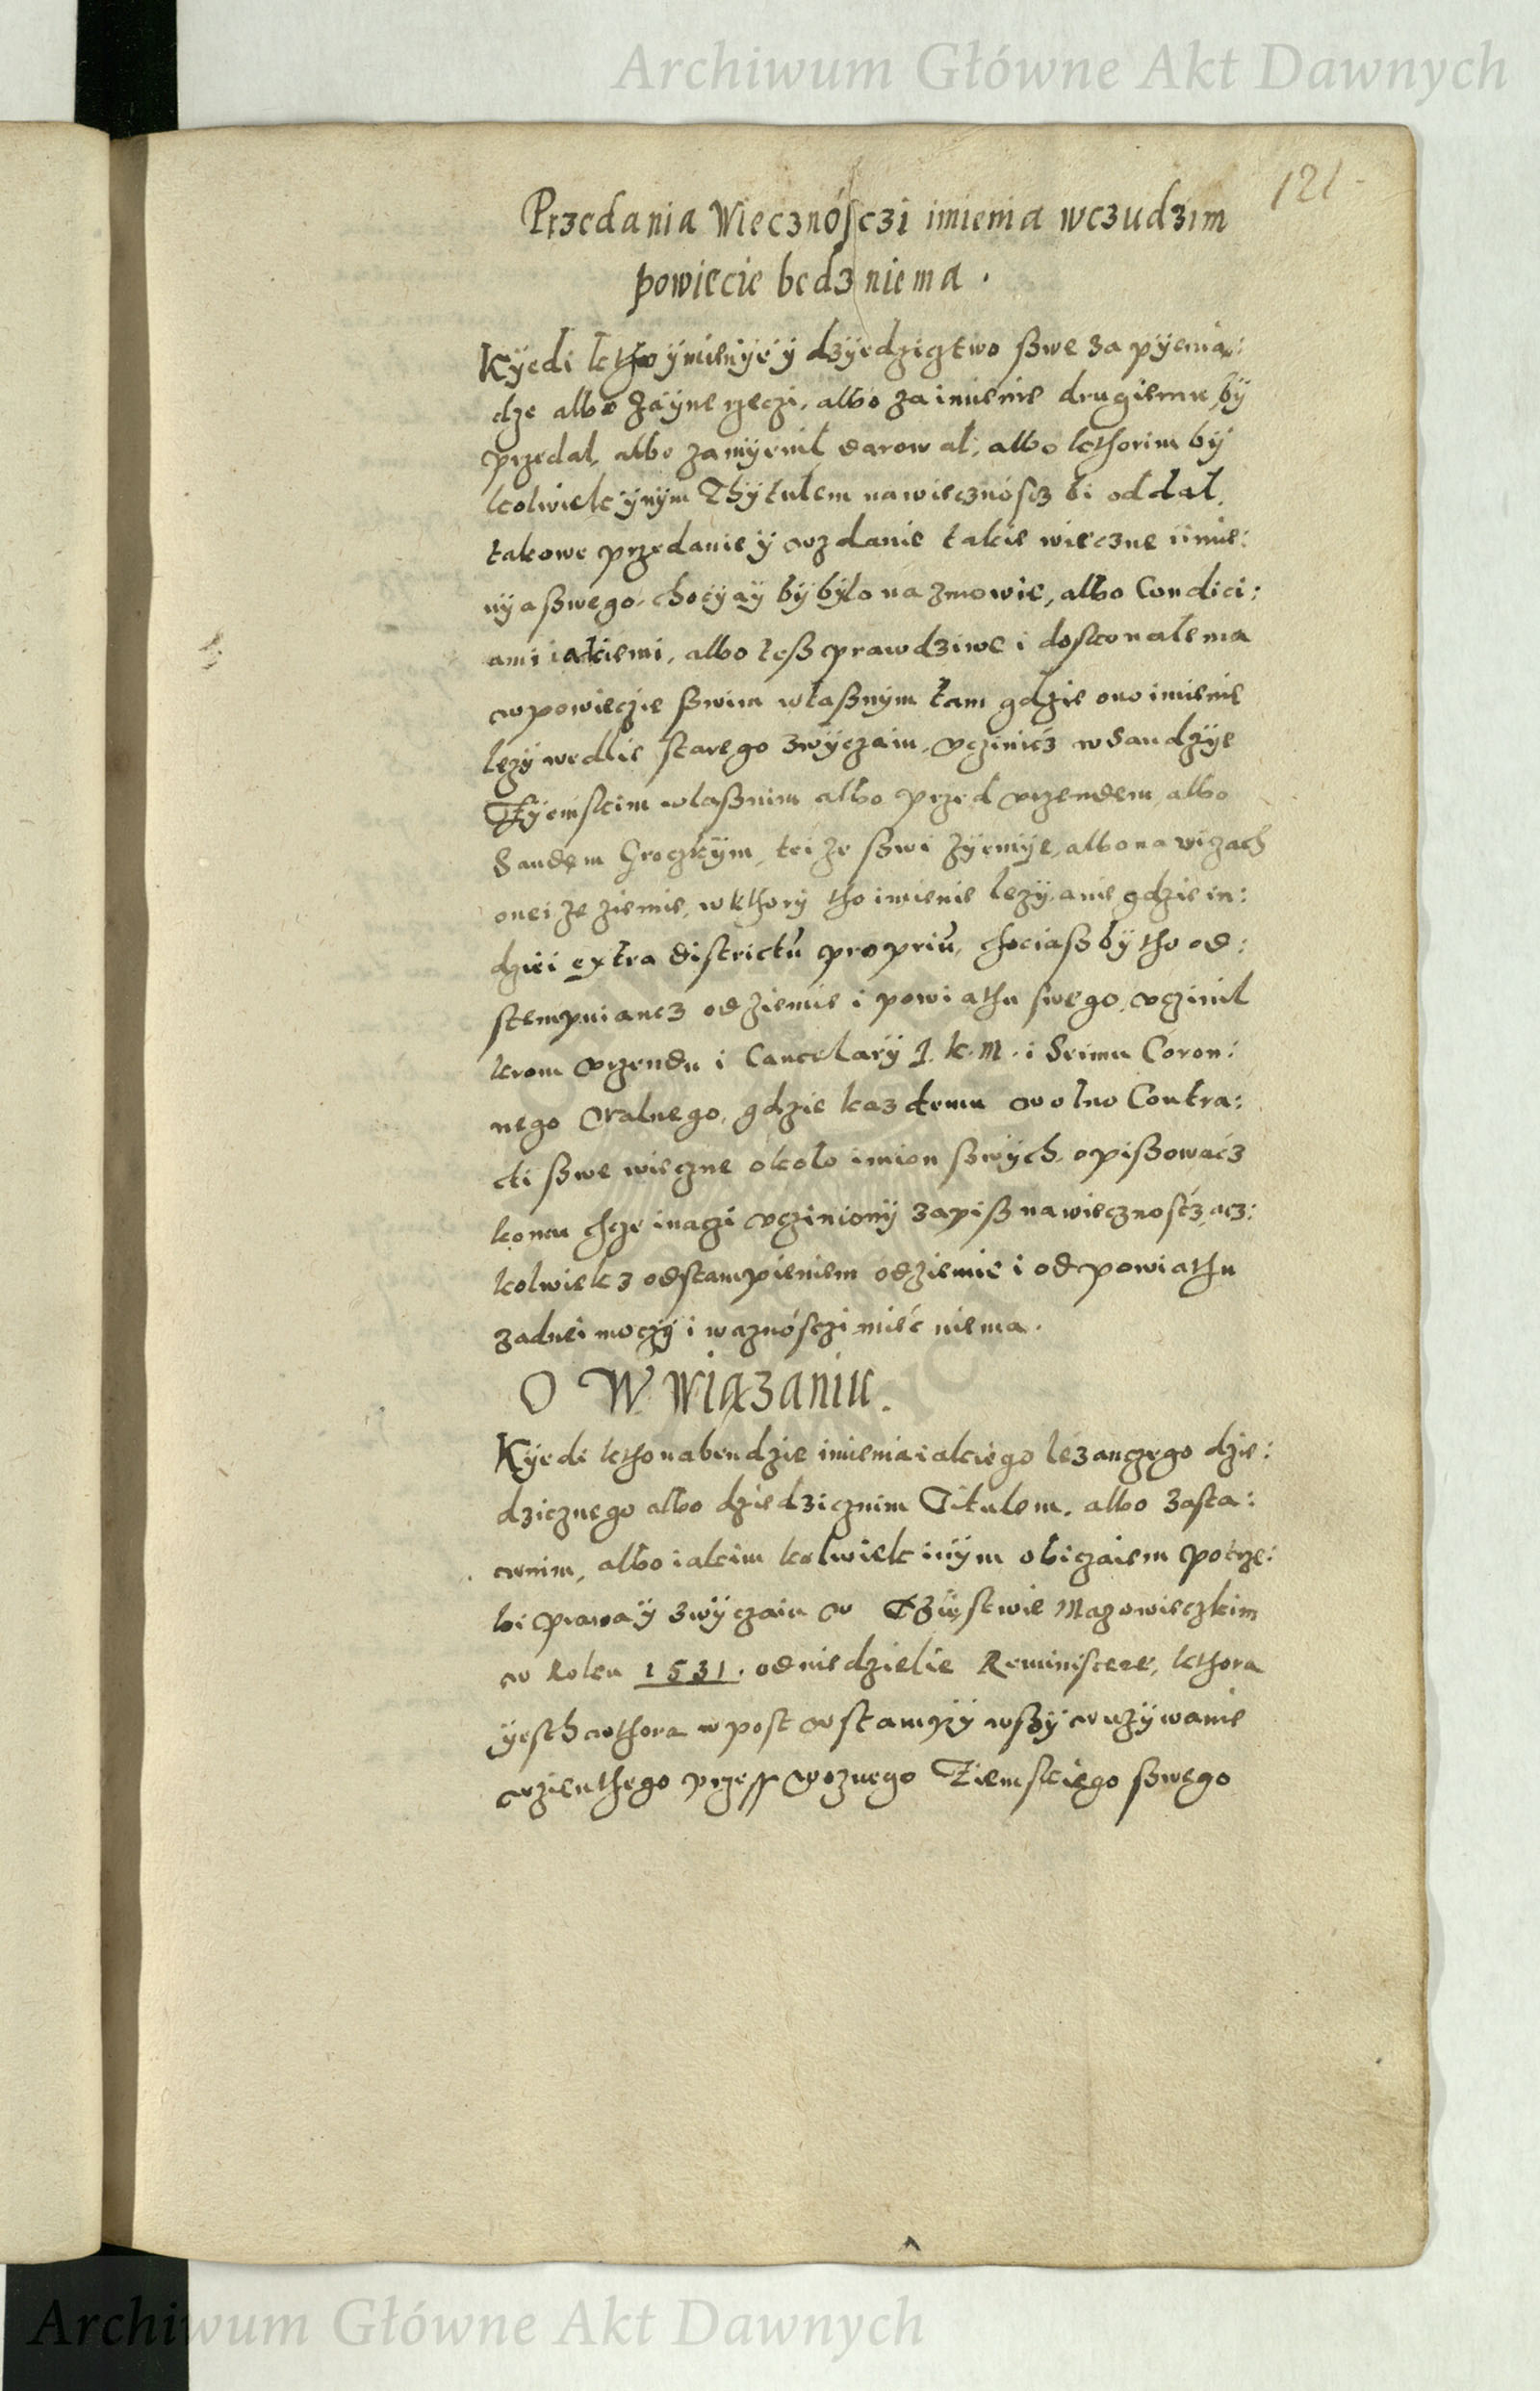 Archiwum Główne Akt Dawnych
121
Przedania Wiecznósczi imienia wczudzim
powiecie bedz niema .
Kÿedi ktho ÿmienÿe ÿ dzÿedzicztwo ßwe za pÿenią:
dze albo za ÿne rzeczi, albo za imienie drugiemu bÿ
przedal, albo zamÿenil, darowal, albo kthorim bÿ
kolwiek ÿnÿm Thÿtulem na wiecznóscz bi oddal.
takowe przedanie ÿ wzdanie takie wieczne iimie:
nÿa ßwego, choćÿaÿ bÿ bÿlo na zmowie, albo Condici:
ami iakiemi, albo teß prawdziwe i doskonale ma
w powieczie ßwim wlaßnÿm tam gdzie ono imienie
lezÿ wedlie starego zwÿczaiu, vczinićz w Sandzÿe
Zÿemskim wlaßnim albo przed vrzendem, albo
Sandem Groczkÿm, tei ze ßwi zÿemÿe, albo na wizach
onei ze ziemie, w kthorÿ tho imienie lezÿ, a nie gdzie in:
dziei extra districtū propriū, chociaß bÿ tho od:
stempuiancz od ziemie i powiathu swego, vczinil
krom vrzendu i Cancelarÿ J. K. M. i Seimu Coron:
nego walnego, gdzie kazdemu wolno Contra:
cti ßwe wieczne około imion ßwÿch, opißowaćz
komu chcze inaczi vczinionÿ zapiß na wiecznośćz, acz:
kolwiek z odstampieniem od ziemie i od powiathu
zadnei moczÿ i waznósczi mieć niema.
O W wiązaniu.
Kÿedi ktho nabendzie imienia iakiego lézanczego dzie:
dzicznego albo dziedzicznim Titulem, albo zasta:
wnim, albo iakim kolwiek inÿm obiczaiem potrze:
bi prawa ÿ zwÿczaiu w Xzięstwie Mazowieczkim
w Roku 1531. od niedzielie Reminiscere, kthora
ÿesth wthora w post wstampÿ wßÿ w uzÿwanie
wzienthego przess woznego Ziemskiego ßwego
Archiwum Główne Akt Dawnych